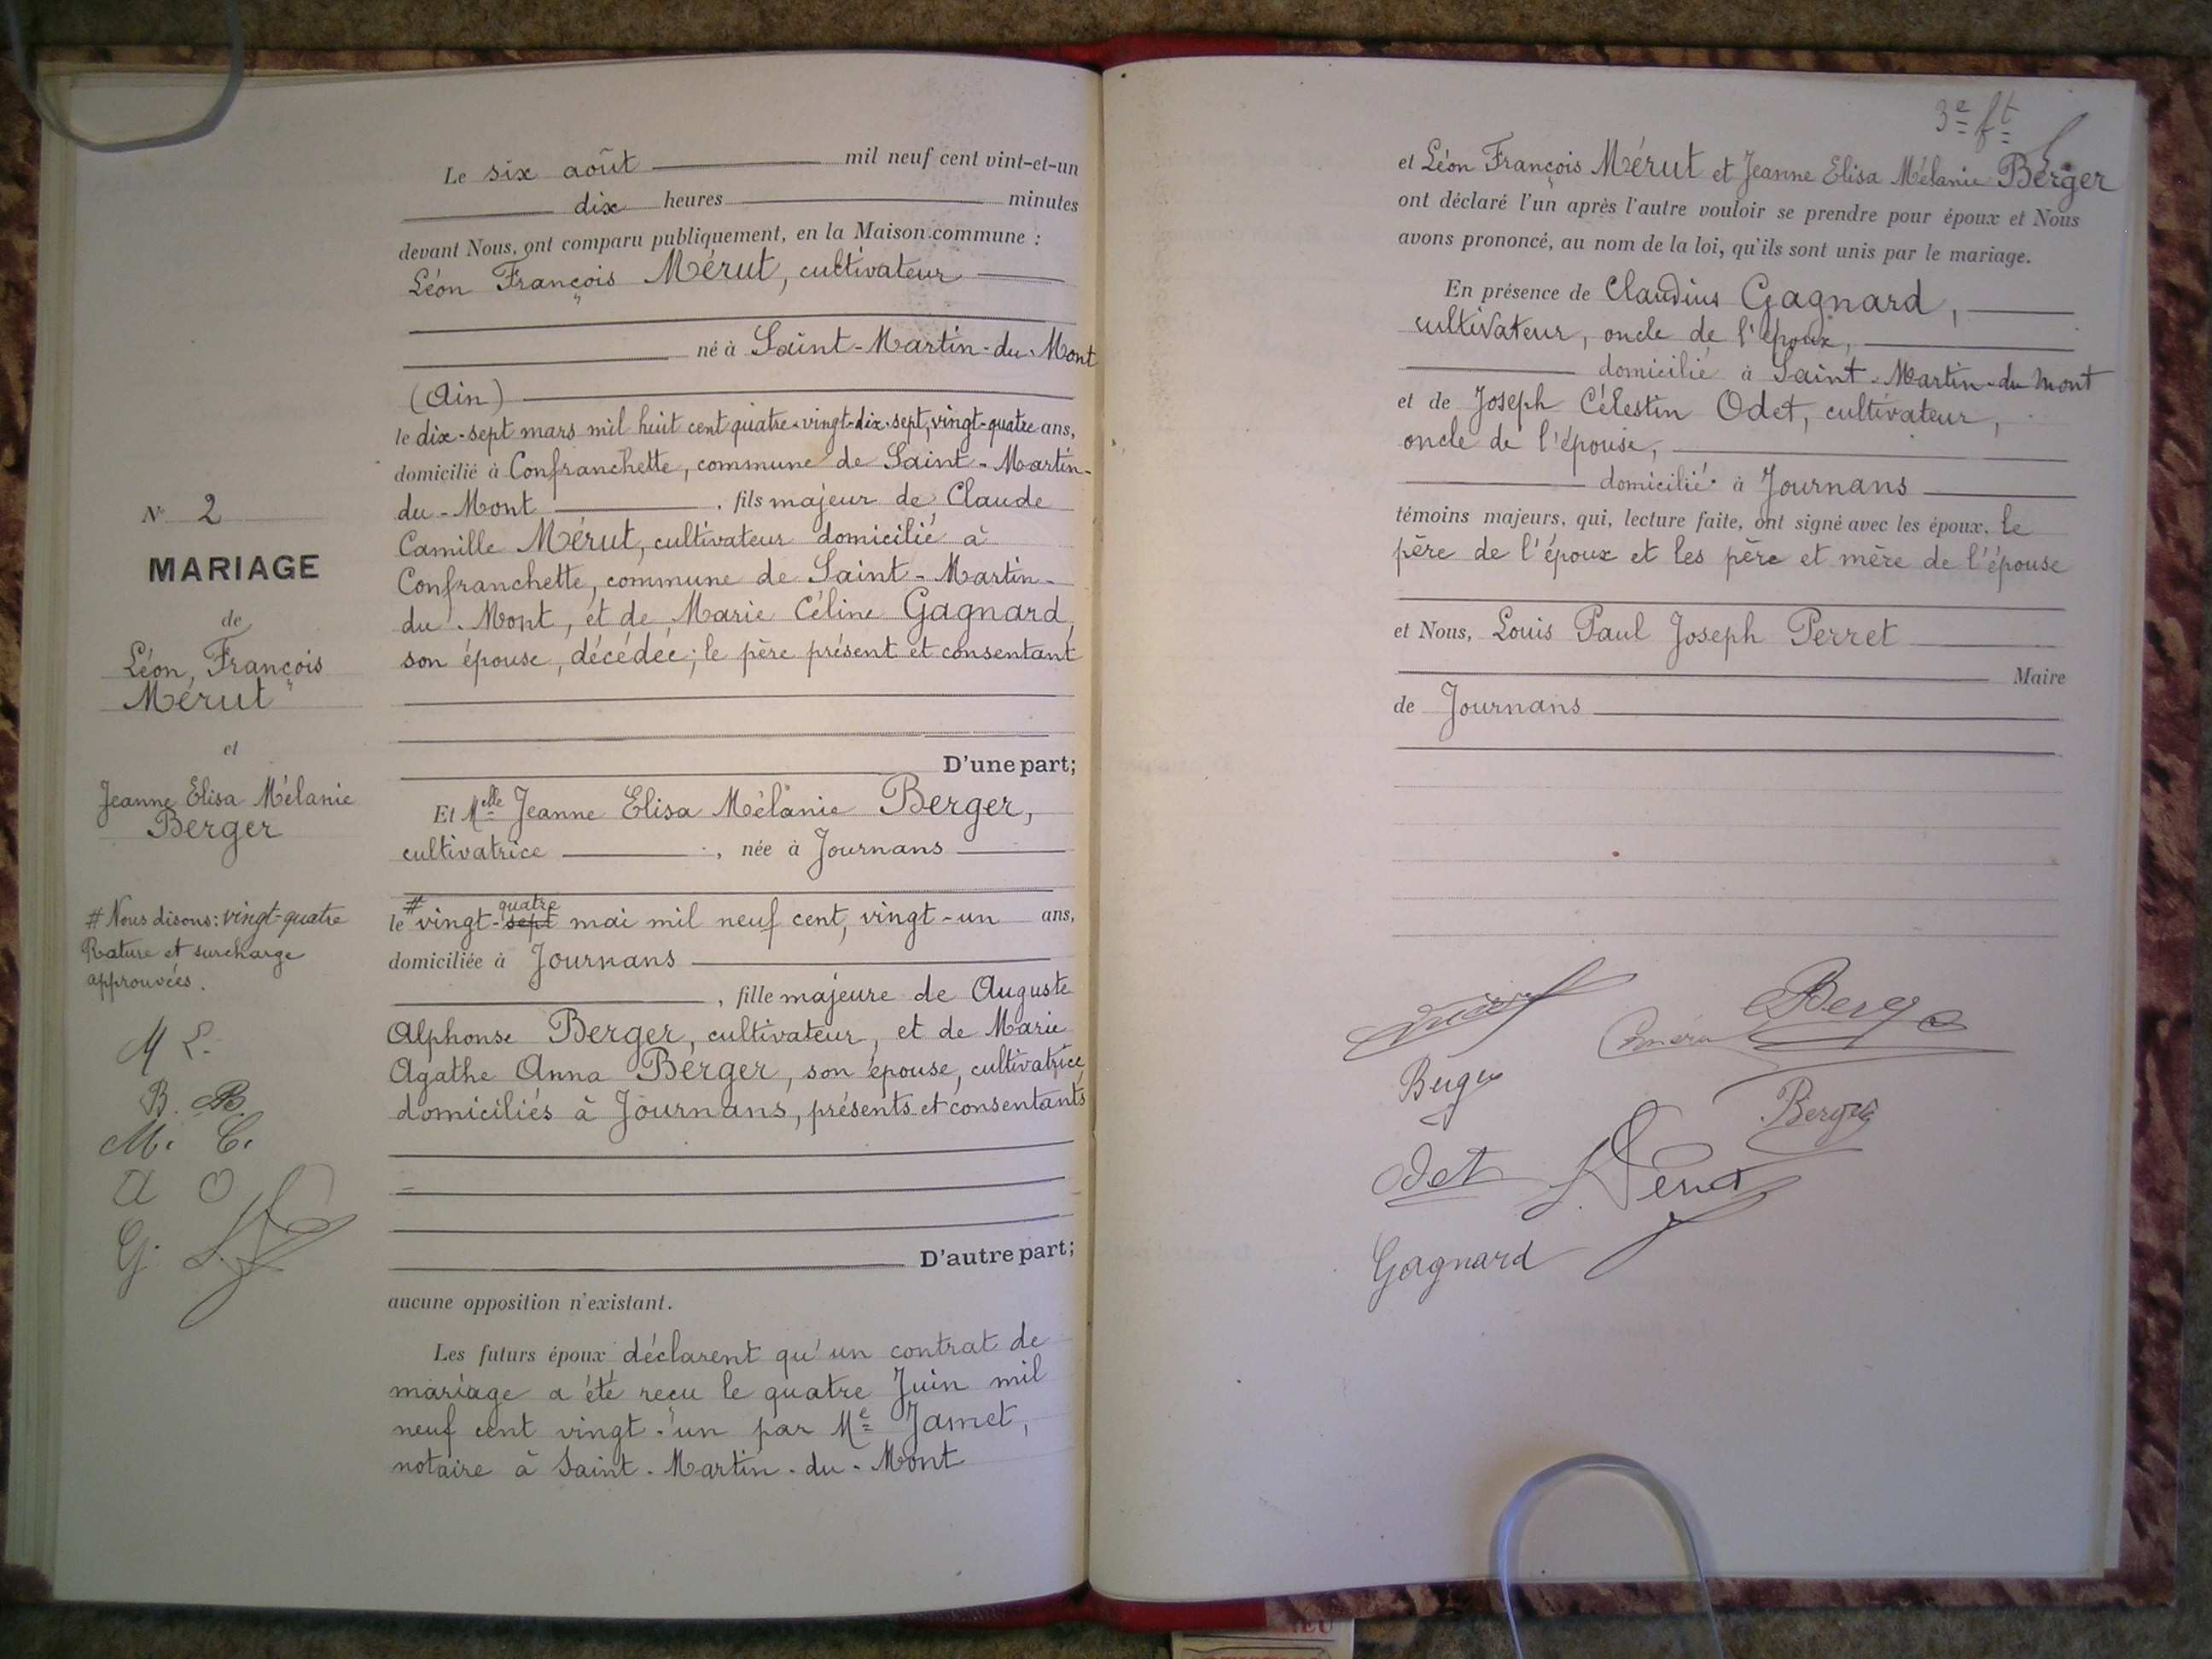 N° 2
MARIAGE
de
Léon, François
Mérut
et
Jeanne Elisa Mélanie
Berger
# Nous disons: vingt-quatre
Rature et surcharge
approuvées.
M L.
B. B.
M. C.
A O
G.
Le six août mil neuf cent vint-et-un
dix heures minutes
devant Nous, ont comparu publiquement, en la Maison commune :
Léon François Mérut, cultivateur
né à Saint-Martin-du-Mont
(Ain)
le dix-sept mars mil huit cent quatre-vingt-dix-sept, vingt-quatre ans,
domicilié à Confranchette, commune de Saint-Martin-
du-Mont, fils majeur de Claude
Camille Mérut, cultivateur domicilié à
Confranchette, commune de Saint-Martin-
du-Mont, et de Marie Céline Gagnard,
son épouse, décédée; le père présent et consentant
D'une part;
Et Melle Jeanne Elisa Mélanie Berger,
cultivatrice, née à Journans
# quatre
le vingt-sept mai mil neuf cent, vingt-un ans,
domiciliée à Journans
, fille majeure de Auguste
Alphonse Berger, cultivateur, et de Marie
Agathe Anna Berger, son épouse, cultivatrice,
domiciliés à Journans, présents et consentants
D'autre part;
aucune opposition n'existant.
Les futurs époux déclarent qu'un contrat de
mariage a été reçu le quatre Juin mil
neuf cent vingt-un par Me Jamet,
notaire à Saint-Martin-du-Mont
3e ft
et Léon François Mérut et Jeanne Elisa Mélanie Berger
ont déclaré l'un après l'autre vouloir se prendre pour époux et Nous
avons prononcé, au nom de la loi, qu'ils sont unis par le mariage.
En présence de Claudius Gagnard,
cultivateur, oncle de l'époux,
domicilié à Saint-Martin-du-Mont
et de Joseph Célestin Odet, cultivateur,
oncle de l'épouse,
domicilié à Journans
témoins majeurs, qui, lecture faite, ont signé avec les époux, le
père de l'époux et les père et mère de l'épouse
et Nous, Louis Paul Joseph Perret
Maire
de Journans
Berger
Berger
Odet
Gagnard